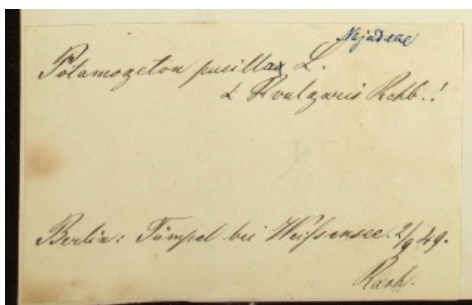 Najadeae
Potamogeton pusilla L.
α vulgaris Rchb.!
Berlin: Tümpel bei Weißensee. 2/9 49.